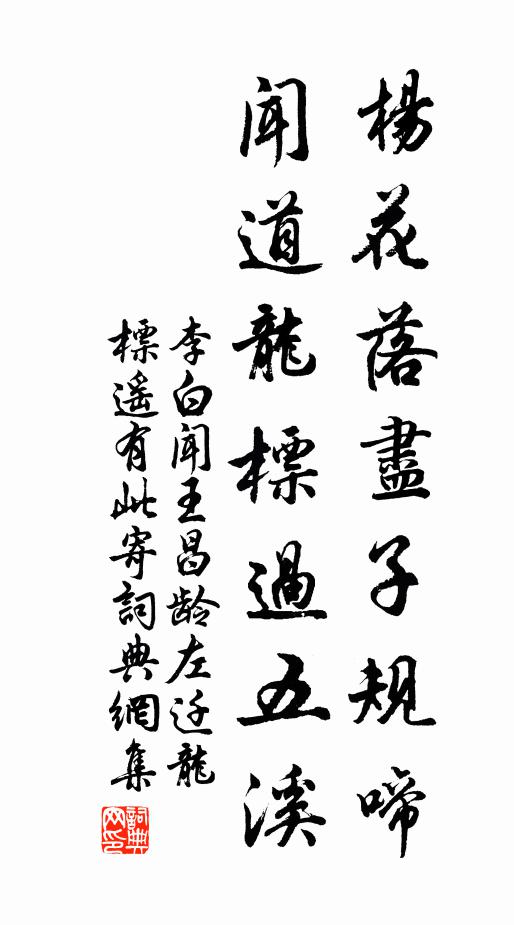 楊花落盡子規啼
聞道龍標過五溪
李白聞王昌齡左迁龍
標遥有此寄詞典網集
詞典
网印